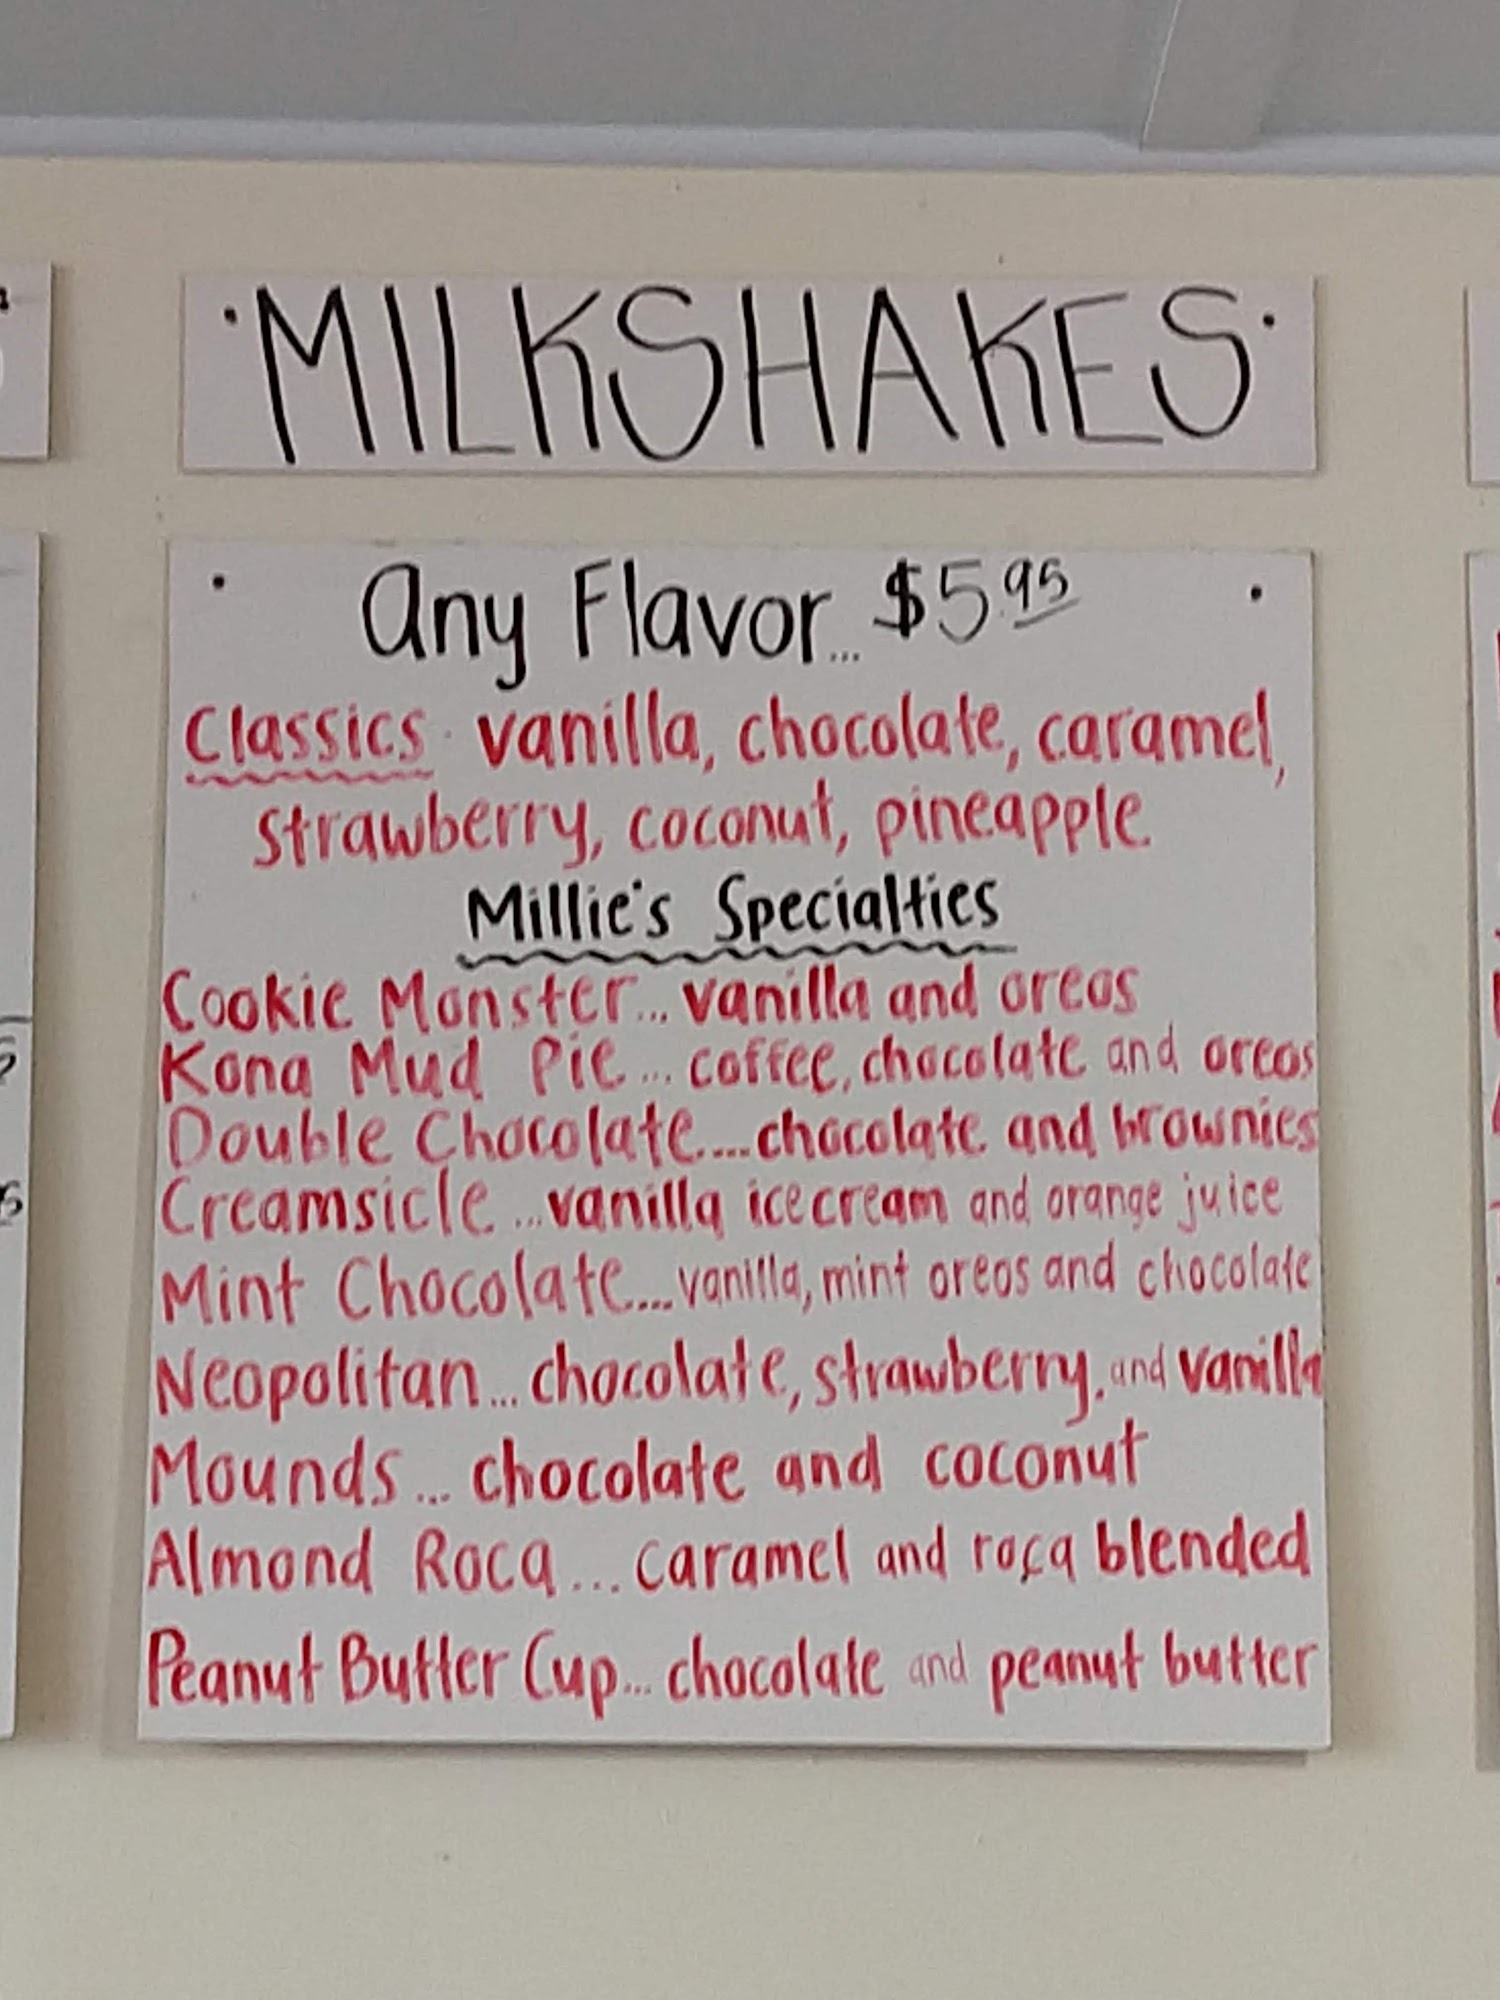 ·MILKSHAKES·
Any Flavor... $5.95
Classics · vanilla, chocolate, caramel,
strawberry, coconut, pineapple.
Millie's Specialties
Cookie Monster... vanilla and oreos
Kona Mud Pie... coffee, chocolate and oreos
Double Chocolate.... chocolate and brownies
Creamsicle... vanilla icecream and orange juice
Mint Chocolate... vanilla, mint oreos and chocolate
Neopolitan... chocolate, strawberry, and vanilla
Mounds... chocolate and coconut
Almond Roca... caramel and roca blended
Peanut Butter Cup... chocolate and peanut butter